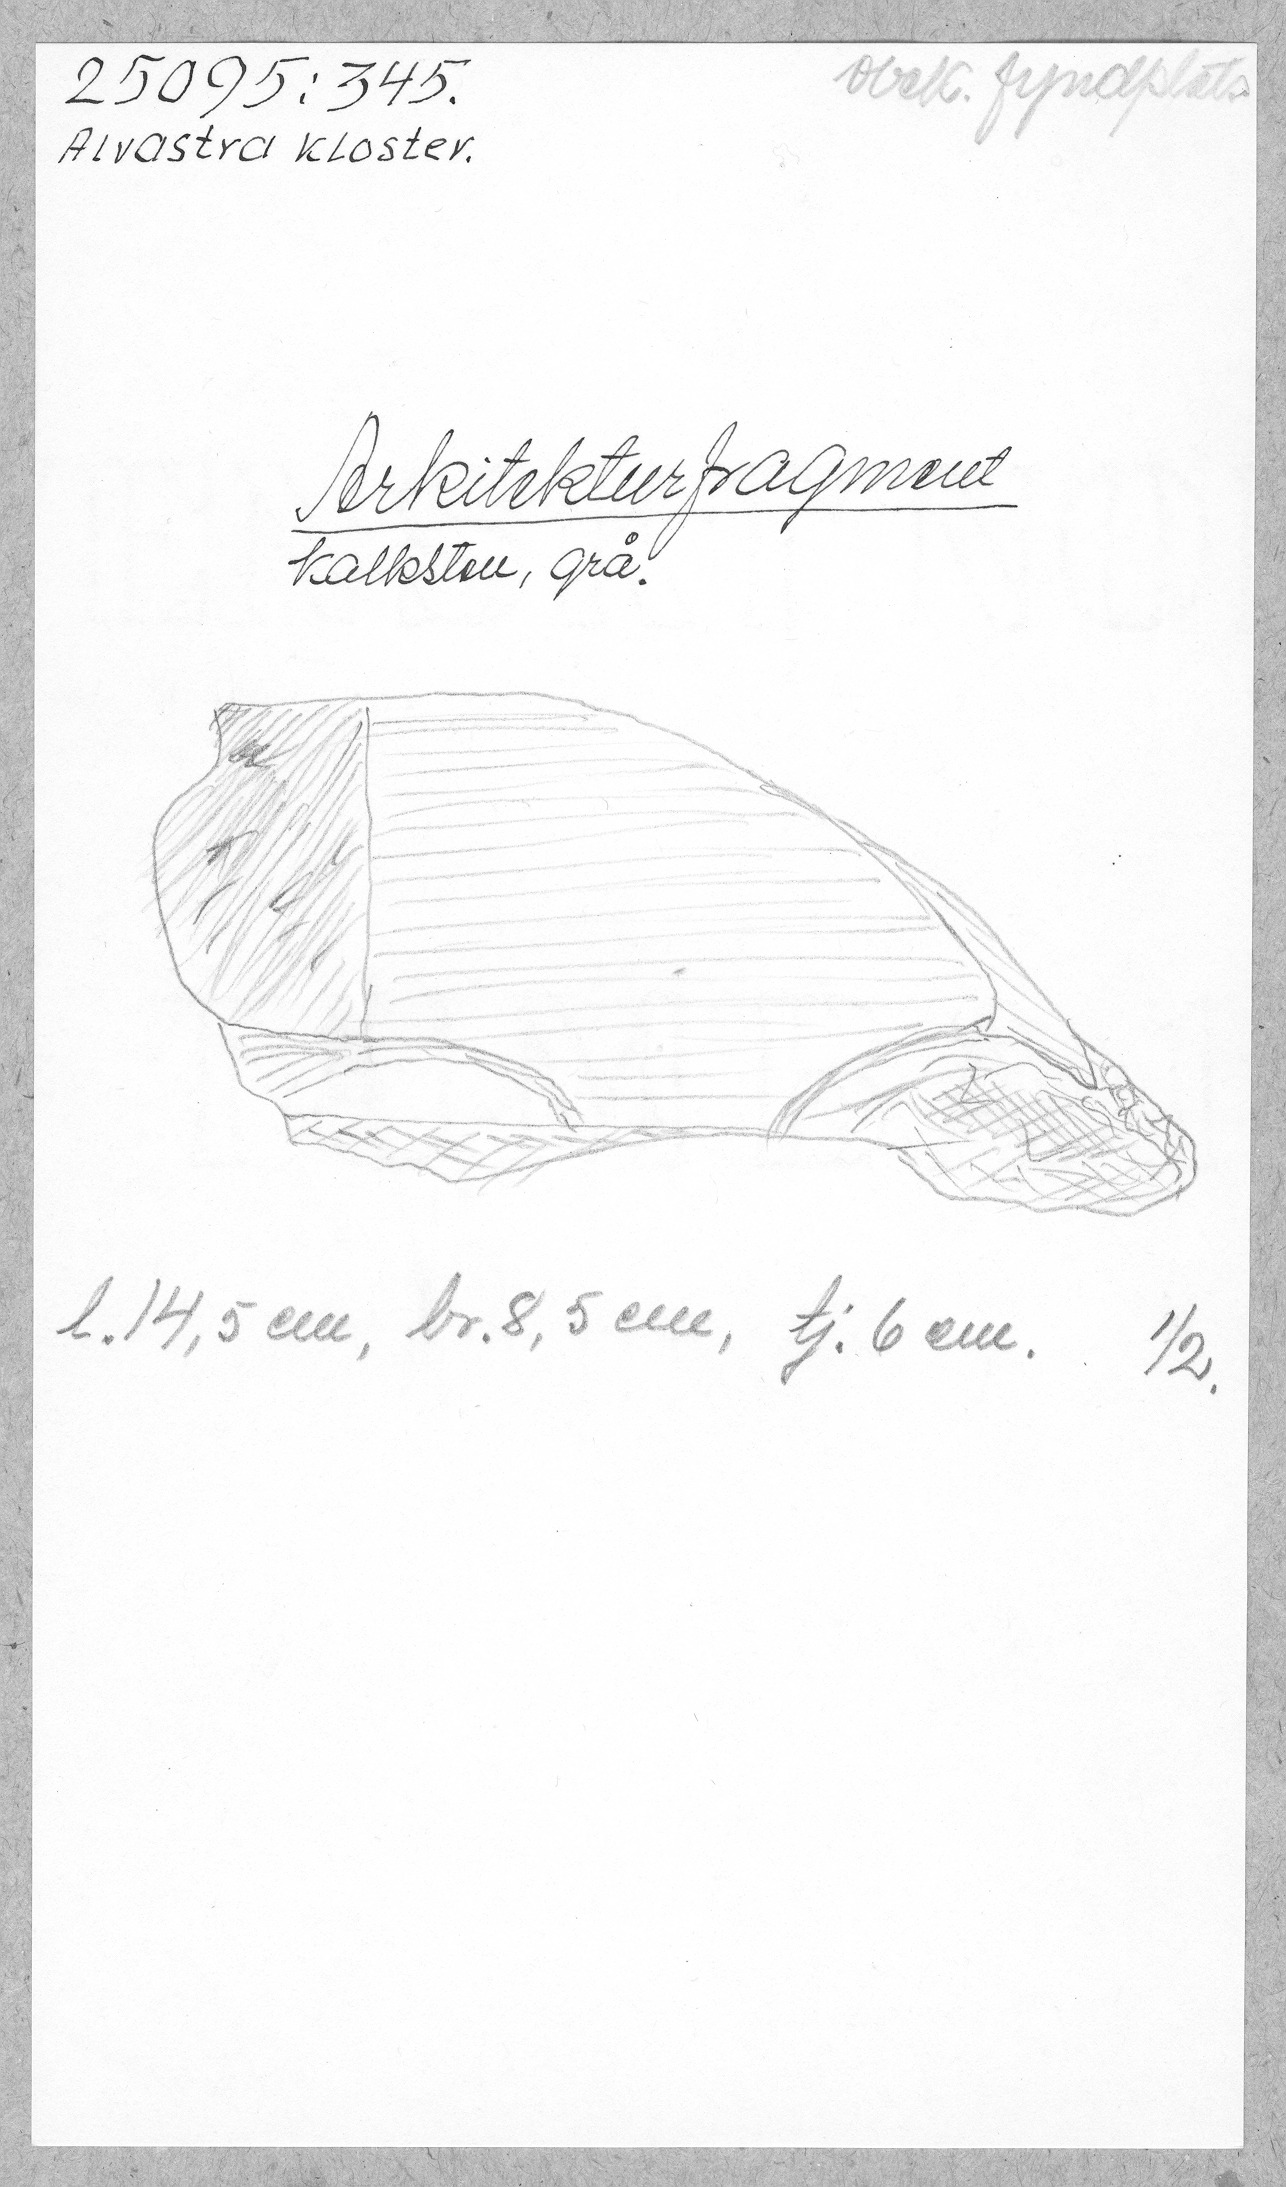 25095:345.
obek. fyndplats
Alvastra kloster.
Arkitekturfragment
kalksten, grå.
l. 14,5 cm, br. 8,5 cm, tj. 6 cm. 1/2.